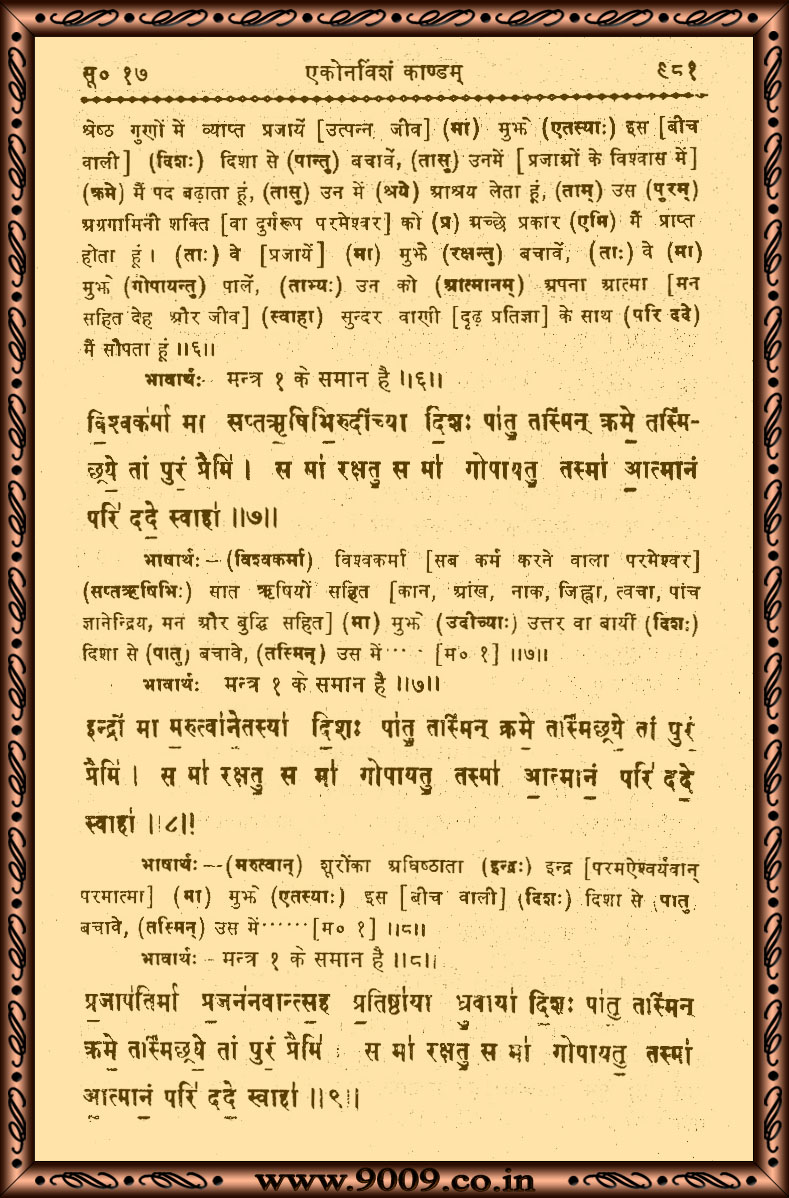 सू० १७ एकोनविंशं काण्डम् ९८१
श्रेष्ठ गुणों में व्याप्त प्रजायें [उत्पन्न जीव] (मा) मुझे (एतस्याः) इस [बीच
वाली] (दिशः) दिशा से (पान्तु) बचावें, (तासु) उनमें [प्रजाओं के विश्वास में]
(क्रमे) मैं पद बढ़ाता हूं, (तासु) उन में (श्रये) आश्रय लेता हूं, (ताम्) उस (पुरम्)
अग्रगामिनी शक्ति [वा दुर्गरूप परमेश्वर] को (प्र) अच्छे प्रकार (एमि) मैं प्राप्त
होता हूं। (ताः) वे [प्रजायें] (मा) मुझे (रक्षन्तु) बचावें, (ताः) वे (मा)
मुझे (गोपायन्तु) पालें, (ताभ्यः) उन को (आत्मानम्) अपना आत्मा [मन
सहित देह और जीव] (स्वाहा) सुन्दर वाणी [दृढ़ प्रतिज्ञा] के साथ (परि ददे)
मैं सौंपता हूं ॥६॥
भावार्थः मन्त्र १ के समान है ॥६॥
वि॒श्वक॑र्मा मा सप्तऋ॒षिभि॒रुदी॑च्या दि॒शः पा॑तु॒ तस्मि॑न् क्रमे॒ तस्मि॑-
छ्रये॒ तां पुरं॒ प्रैमि॑। स मा॑ रक्षतु॒ स मा॑ गोपायतु॒ तस्मा॑ आ॒त्मानं॒
परि॑ ददे॒ स्वाहा॑ ॥७॥
भाषार्थः—(विश्वकर्मा) विश्वकर्मा [सब कर्म करने वाला परमेश्वर]
(सप्तऋषिभिः) सात ऋषियों सहित [कान, आंख, नाक, जिह्वा, त्वचा, पांच
ज्ञानेन्द्रिय, मन और बुद्धि सहित] (मा) मुझे (उदीच्याः) उत्तर वा बायीं (दिशः)
दिशा से (पातु) बचावे, (तस्मिन्) उस में···· [म० १] ॥७॥
भावार्थः मन्त्र १ के समान है ॥७॥
इन्द्रो॑ मा म॒रुत्वा॑ने॒तस्या॑ दि॒शः पा॑तु॒ तस्मि॑न् क्रमे॒ तस्मि॑छ्रये॒ तां पुरं॒
प्रैमि॑। स मा॑ रक्षतु॒ स मा॑ गोपायतु॒ तस्मा॑ आ॒त्मानं॒ परि॑ ददे॒
स्वाहा॑ ॥८॥
भाषार्थः—(मरुत्वान्) शूरोंका अधिष्ठाता (इन्द्रः) इन्द्र [परमऐश्वर्यवान्
परमात्मा] (मा) मुझे (एतस्याः) इस [बीच वाली] (दिशः) दिशा से (पातु
बचावे, (तस्मिन्) उस में······[म० १] ॥८॥
भावार्थः - मन्त्र १ के समान है ॥८॥
प्र॒जाप॑तिर्मा प्र॒जन॑नवान्त्स॒ह प्र॑ति॒ष्ठा॑या ध्रु॒वाया॑ दि॒शः पा॑तु॒ तस्मि॑न्
क्रमे॒ तस्मि॑छ्रये॒ तां पुरं॒ प्रैमि॑। स मा॑ रक्षतु॒ स मा॑ गोपायतु॒ तस्मा॑
आ॒त्मानं॒ परि॑ ददे॒ स्वाहा॑ ॥९॥
www.9009.co.in